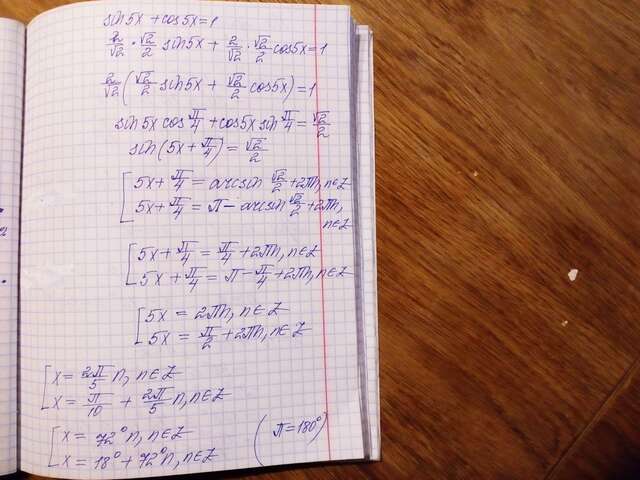 sin5x + cos5x = 1
2/√2 · √2/2 sin5x + 2/√2 · √2/2 cos5x = 1
2/√2 (√2/2 sin5x + √2/2 cos5x) = 1
sin5x cos π/4 + cos5x sin π/4 = √2/2
sin(5x + π/4) = √2/2
[ 5x + π/4 = arcsin √2/2 + 2πn, n∈Z
5x + π/4 = π − arcsin √2/2 + 2πn,
n∈Z
[ 5x + π/4 = π/4 + 2πn, n∈Z
5x + π/4 = π − π/4 + 2πn, n∈Z
[ 5x = 2πn, n∈Z
5x = π/2 + 2πn, n∈Z
[ x = 2π/5 n, n∈Z
x = π/10 + 2π/5 n, n∈Z
[ x = 72° n, n∈Z
x = 18° + 72° n, n∈Z
(π = 180°)